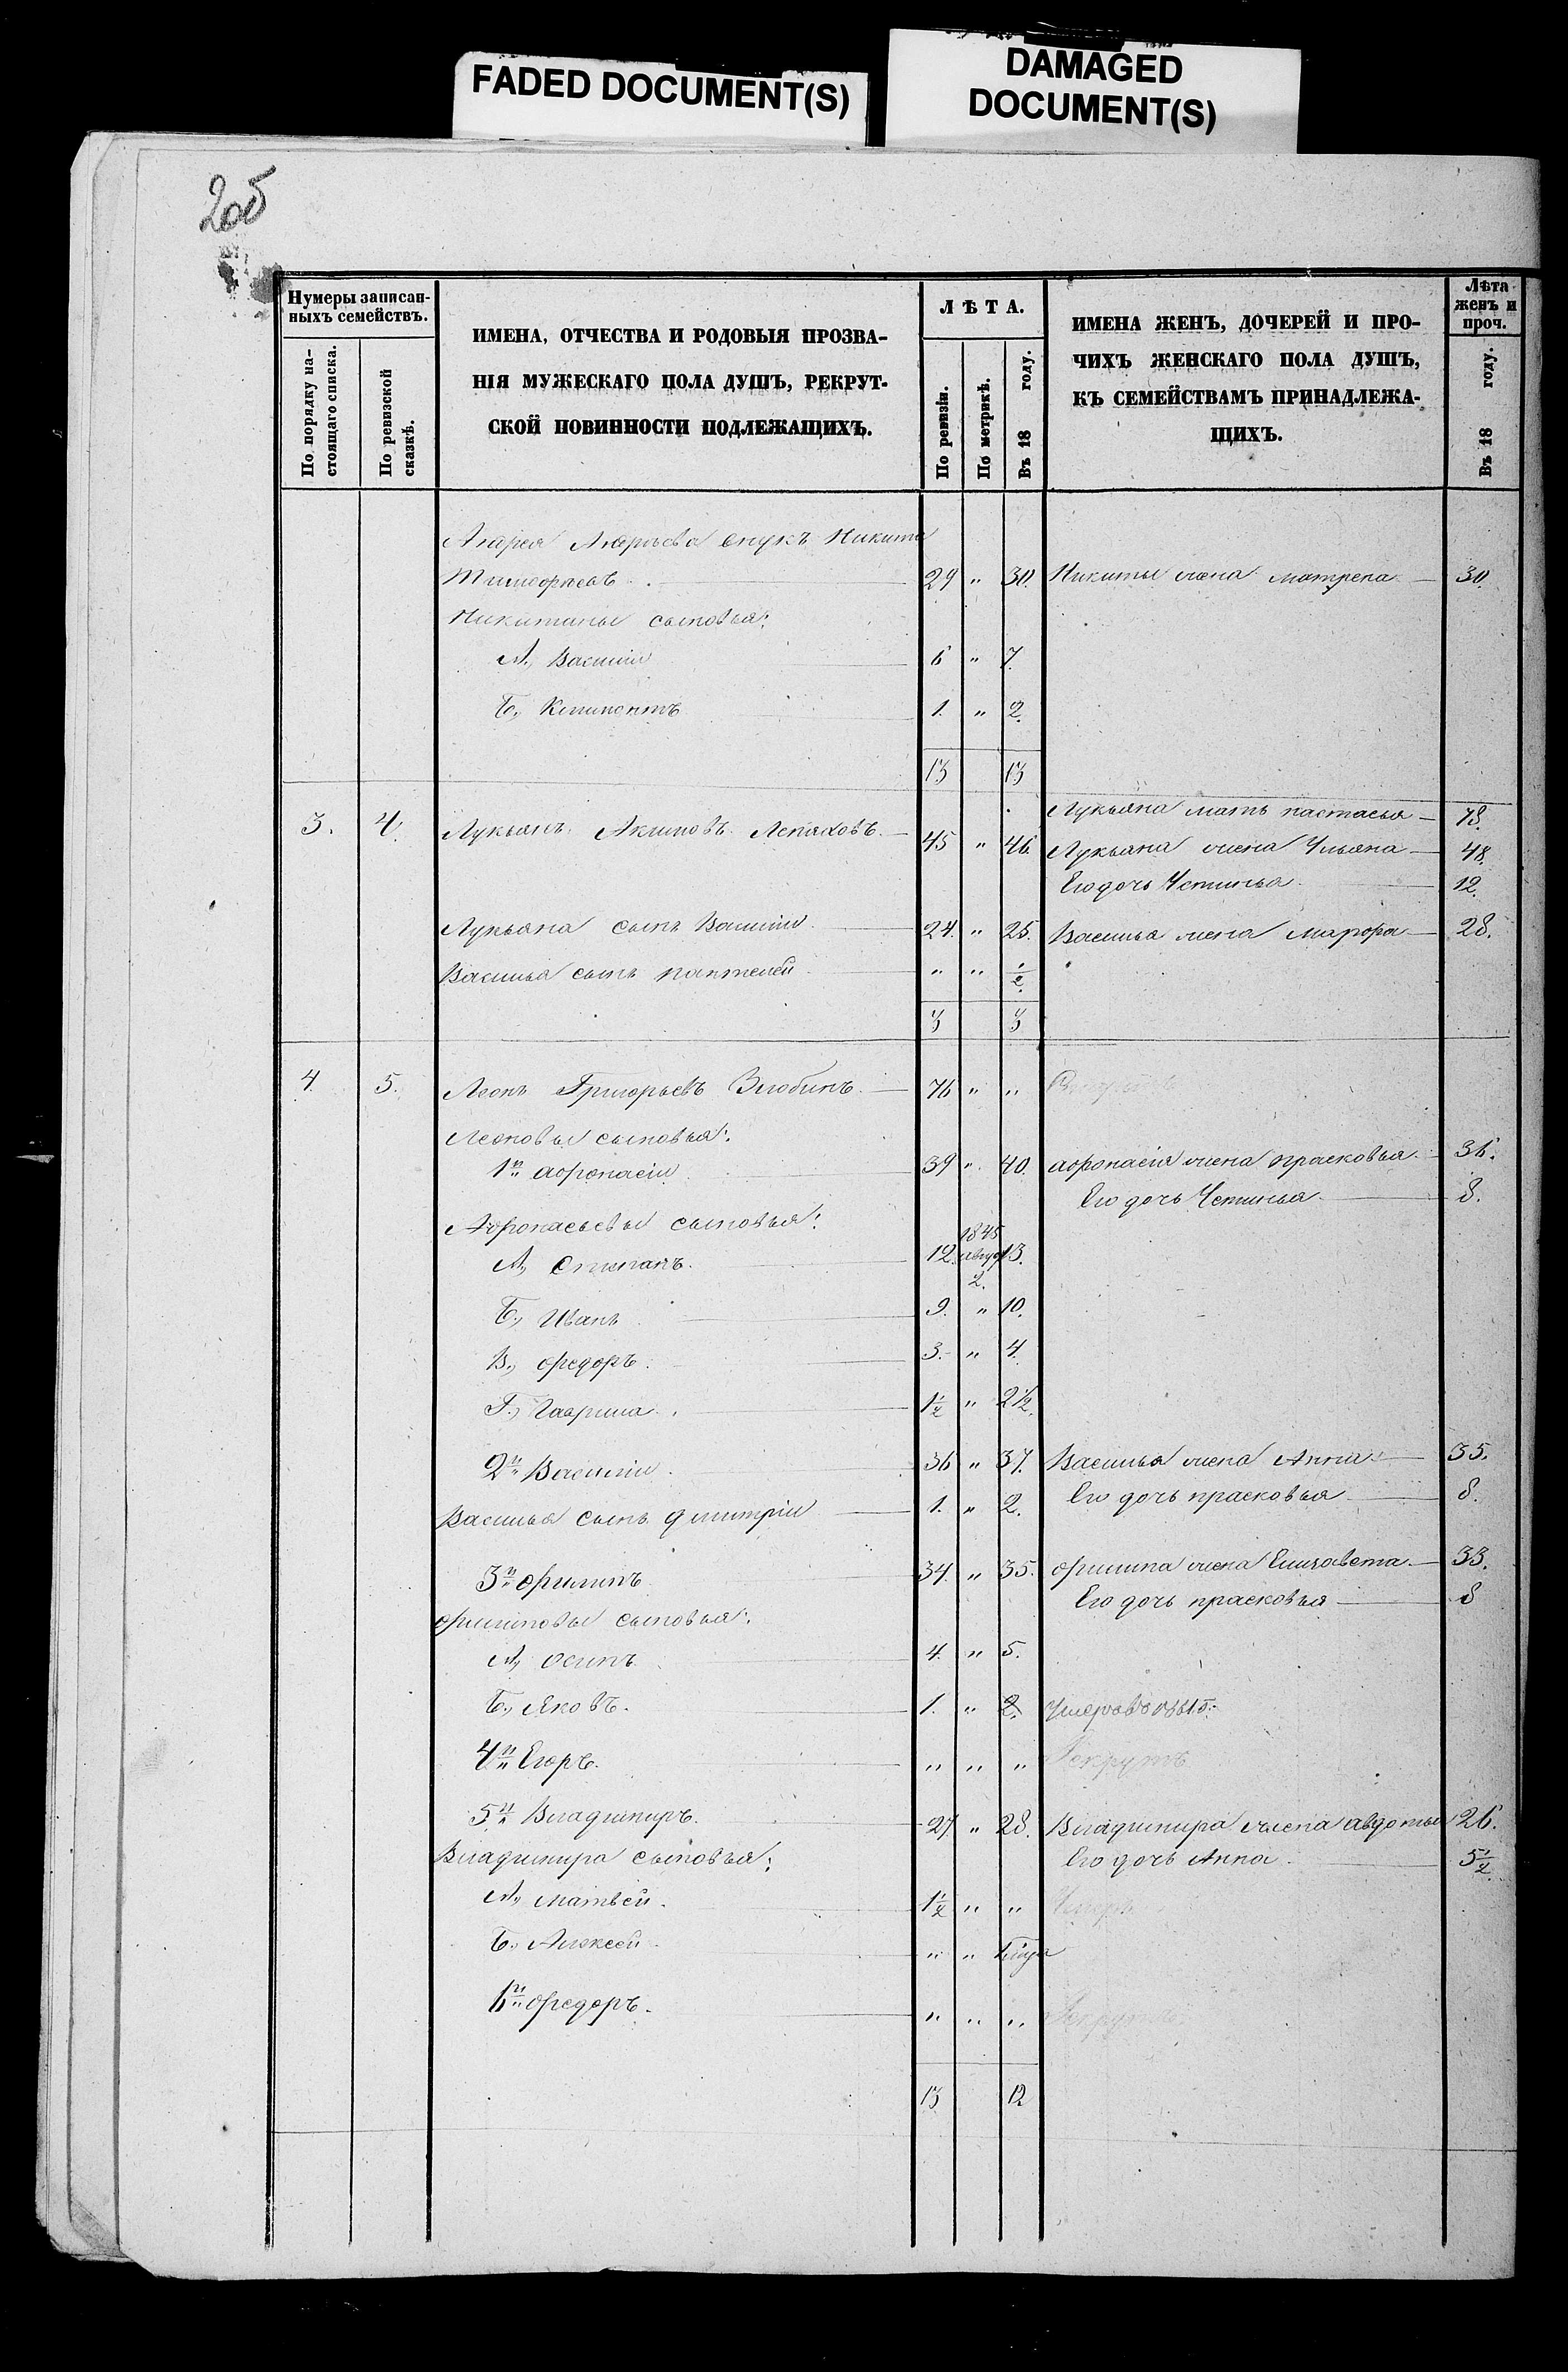 FADED DOCUMENT(S)
DAMAGED
DOCUMENT(S)
205
Нумеры записан-
ныхъ семействъ.
По порядку на-
стоящаго списка.
По ревизской
сказкѣ.
ИМЕНА, ОТЧЕСТВА И РОДОВЫЯ ПРОЗВА-
НІЯ МУЖЕСКАГО ПОЛА ДУШЪ, РЕКРУТ-
СКОЙ ПОВИННОСТИ ПОДЛЕЖАЩИХЪ.
ЛѢТА.
По ревизіи.
По метрикѣ.
Въ 18 году.
ИМЕНА ЖЕНЪ, ДОЧЕРЕЙ И ПРО-
ЧИХЪ ЖЕНСКАГО ПОЛА ДУШЪ,
КЪ СЕМЕЙСТВАМЪ ПРИНАДЛЕЖА-
ЩИХЪ.
Лѣта
женъ и
проч.
Въ 18 году.
Андрея внукъ Никита
Тимофѣевъ. 29 " 30. Никиты жена матрена 30.
Никитины сыновья:
А., Василій 6 " 7.
Б., Климонтъ 1. " 2.
13 13
Лукьяна мать настасья 78.
3. 4. Лукьянъ Акимовъ 45 " 46. Лукьяна жена Ульяна 48.
Его дочь Устинья 12.
Лукьяна сынъ Василій 24. " 25. Василья жена Марфа 28.
Василья сынъ пантелей " " 1/2.
3 3
4 5. Леонъ Григорьевъ Злобинъ 76 " "
Леоновы сыновья:
1й афонасій 39 " 40. афонасія жена прасковья 36.
Его дочь Устинья 8.
Афонасьевы сыновья:
А., Степанъ. 12. 1845 авгус 2. 13.
Б., Иванъ 9. " 10.
В., федоръ. 3. " 4.
Г., Гаврила. 1 1/2 " 2 1/2.
2й Василій. 36 " 37. Василья жена Анна 35.
Василья сынъ Дмитрій 1. " 2. Его дочь прасковья 8.
3й филипъ 34. " 35. филипа жена Елизавета 33.
Его дочь прасковья 8
филиповы сыновья:
А., осипъ. 4. " 5.
Б., Яковъ. 1. " 2.
4й Егоръ. " " " Рекрутъ
5й Владимиръ. 27. " 28. Владимира жена авдотья 26.
Владимира сыновья: Его дочь Анна. 5 1/2.
А., матвей. 1 1/2 " "
Б., Алексей " "
6й федоръ. " " " Рекрутъ
13 12